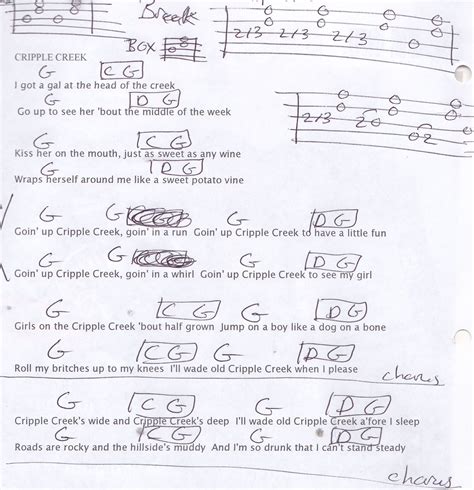 Breedk
BOX
2 1 3 2 1 3 2 1 3
CRIPPLE CREEK
G C G
I got a gal at the head of the creek
G D G
Go up to see her 'bout the middle of the week
2 1 3 2 0 0 0 2
G C G
Kiss her on the mouth, just as sweet as any wine
G D G
Wraps herself around me like a sweet potato vine
G G G D G
Goin' up Cripple Creek, goin' in a run Goin' up Cripple Creek to have a little fun
G G G D G
Goin' up Cripple Creek, goin' in a whirl Goin' up Cripple Creek to see my girl
G C G G D G
Girls on the Cripple Creek 'bout half grown Jump on a boy like a dog on a bone
G C G G D G
Roll my britches up to my knees I'll wade old Cripple Creek when I please
chorus
G C G G D G
Cripple Creek's wide and Cripple Creek's deep I'll wade old Cripple Creek a'fore I sleep
G C G G D G
Roads are rocky and the hillside's muddy And I'm so drunk that I can't stand steady
chorus